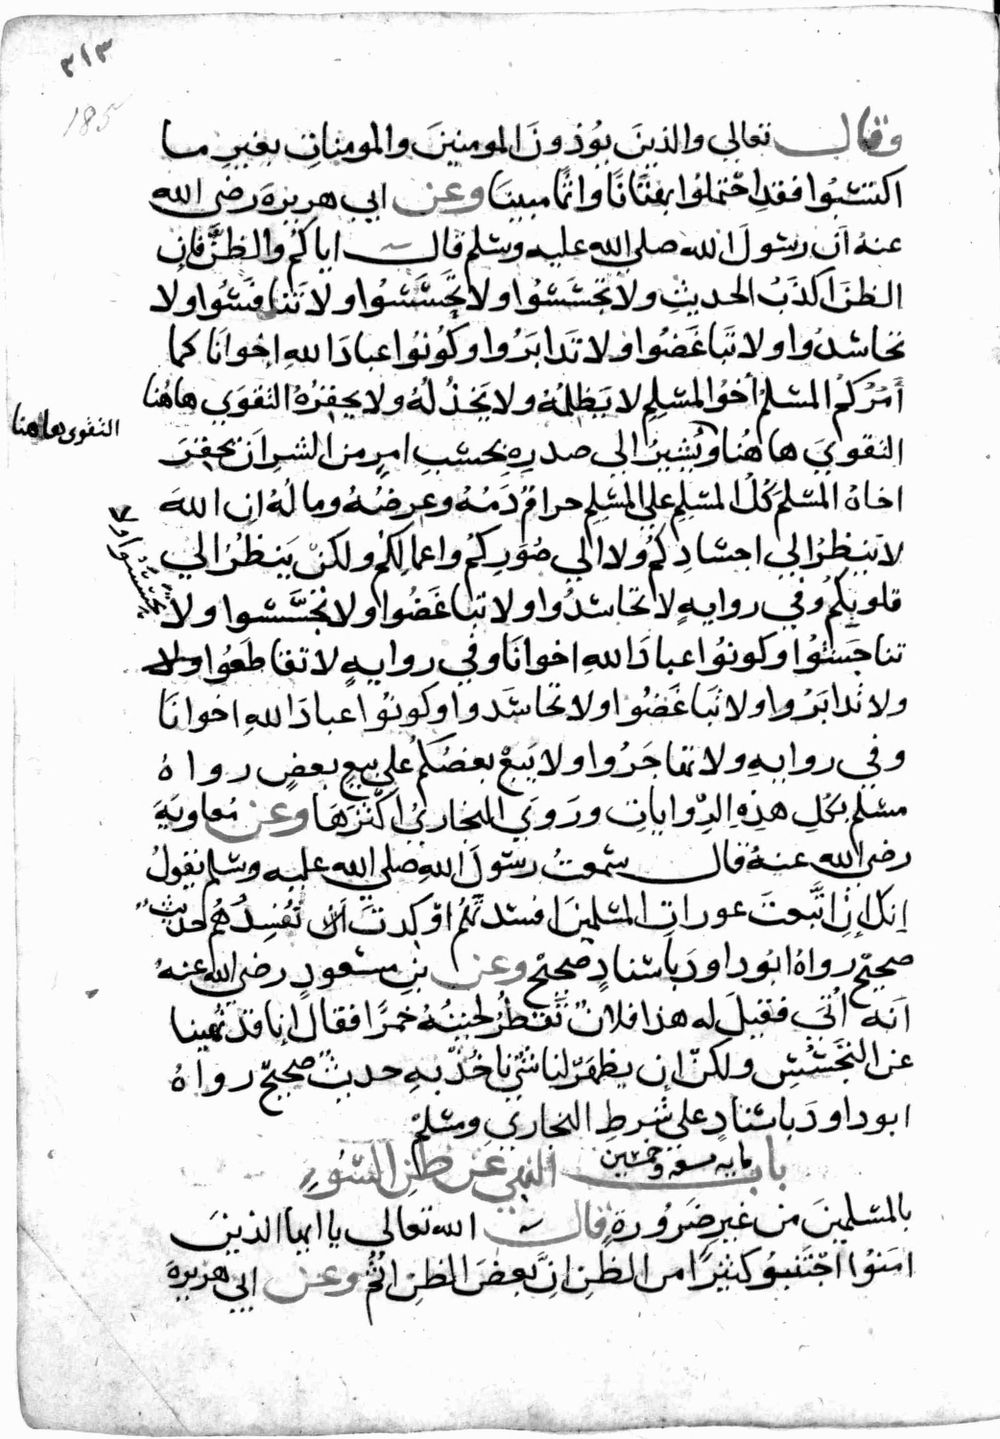 ٣١٣
185
وقال تعالى والذين يوذون المومنين والمومنات بغير ما
اكتسبوا فقد احتملوا بهتانا واثما مبينا وعن ابي هريرة رضي الله
عنه ان رسول الله صلى الله عليه وسلم قال اياكم والظن فان
الظن اكذب الحديث ولا تحسسوا ولا تجسسوا ولا تنافسوا ولا
تحاسدوا ولا تباغضوا ولا تدابروا وكونوا عباد الله اخوانا كما
أمركم المسلم أخو المسلم لا يظلمه ولا يخذله ولا يحقره التقوى هاهنا
التقوى هاهنا
التقوى هاهنا ويشير الى صدره بحسب امرء من الشر ان يحقر
اخاه المسلم كل المسلم على المسلم حرام دمه وعرضه وماله ان الله
لا ينظر الى اجسادكم ولا الى صوركم واعمالكم ولكن ينظر الى
قلوبكم وفي رواية لا تحاسدوا ولا تباغضوا ولا تجسسوا ولا
تحسسوا ولا
تناجشوا وكونوا عباد الله اخوانا وفي رواية لا تقاطعوا ولا
ولا تدابروا ولا تباغضوا ولا تحاسدوا وكونوا عباد الله اخوانا
وفي رواية ولا تهاجروا ولا يبع بعضكم على بيع بعض رواه
مسلم بكل هذه الروايات وروى البخاري اكثرها وعن معاوية
رضي الله عنه قال سمعت رسول الله صلى الله عليه وسلم يقول
انك ان اتبعت عورات المسلمين افسدتهم او كدت ان تفسدهم حديث
صحيح رواه ابو داود باسناد صحيح وعن بن مسعود رضي الله عنه
انه أتي فقيل له هذا فلان تقطر لحيته خمرا فقال إنا قد نهينا
عن التجسس ولكن ان يظهر لنا شئ ناخذ به حديث صحيح رواه
ابو داود باسناد على شرط البخاري ومسلم
باب مايه سته وخمسين النهي عن ظن السوء
بالمسلمين من غير ضرورة قال الله تعالى يا ايها الذين
امنوا اجتنبو كثيرا من الظن ان بعض الظن اثم وعن ابي هريرة